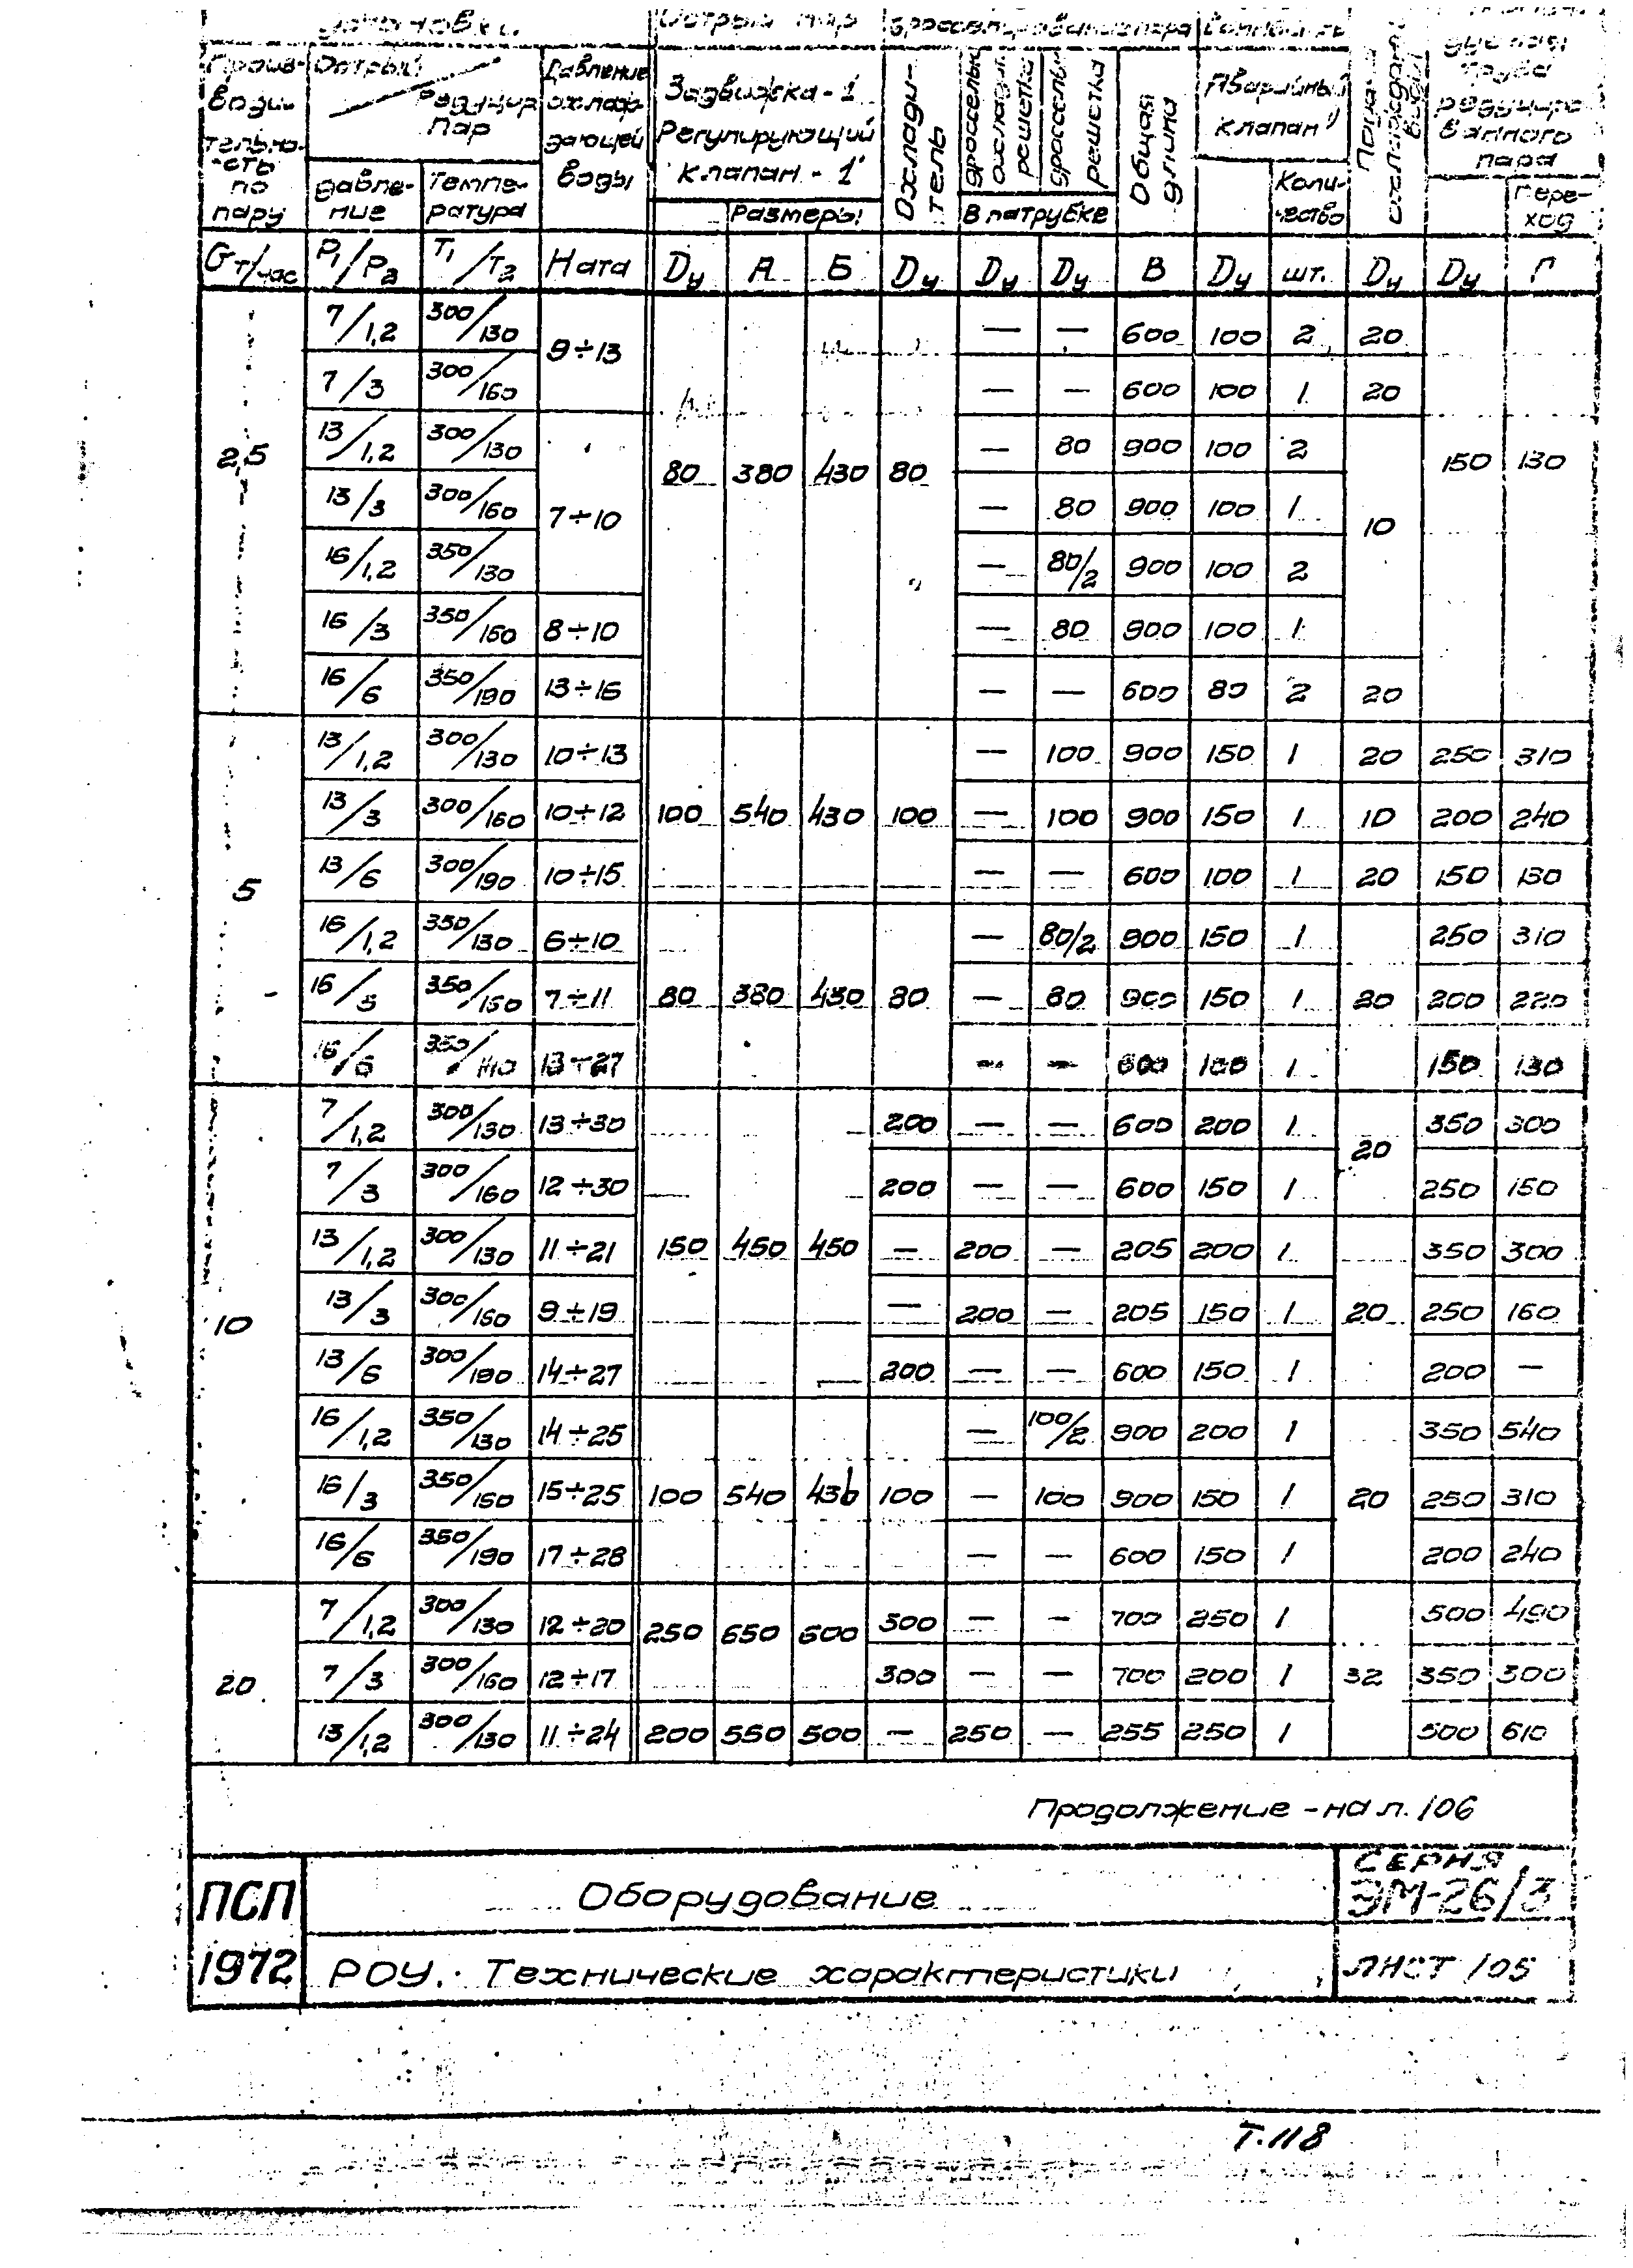 Острый пар
Произ-
води-
тельно-
-сть
по
пару
Острый
Редуцир
пар
Давление
охлаж-
дающей
воды
Задвижка - 1
Регулирующий
клапан - 1
Охлади-
тель
дроссельно
охладит.
решетка
дроссельн.
решетка
Общая
длина
Аварийный
клапан 1)
редуциро-
ванного
пара
давле-
ние
Темпе-
ратура
Размеры
В патрубке
Коли-
чество
Пере-
ход
G т/час P1/P2 T1/T2 Н ата Dу А Б Dу Dу Dу В Dу шт. Dу Dу Г
2,5 80 380 430 80 150 130
7/1,2 300/130 9÷13 — — 600 100 2 20
7/3 300/160 — — 600 100 1 20
13/1,2 300/130 — 80 900 100 2
13/3 300/160 7÷10 — 80 900 100 1 10
16/1,2 350/130 — 80/2 900 100 2
16/3 350/160 8÷10 — 80 900 100 1
16/6 350/190 13÷16 — — 600 80 2 20
5
13/1,2 300/130 10÷13 — 100 900 150 1 20 250 310
13/3 300/160 10÷12 100 540 430 100 — 100 900 150 1 10 200 240
13/6 300/190 10÷15 — — 600 100 1 20 150 130
16/1,2 350/130 6÷10 — 80/2 900 150 1 250 310
16/3 350/160 7÷11 80 380 430 80 — 80 900 150 1 20 200 220
16/6 350/ 13÷27 — — 600 100 1 150 130
10
7/1,2 300/130 13÷30 200 — — 600 200 1 20 350 300
7/3 300/160 12÷30 200 — — 600 150 1 250 150
13/1,2 300/130 11÷21 150 450 450 — 200 — 205 200 1 350 300
13/3 300/160 9÷19 — 200 — 205 150 1 20 250 160
13/6 300/190 14÷27 200 — — 600 150 1 200 —
16/1,2 350/130 14÷25 — 100/2 900 200 1 350 540
16/3 350/160 15÷25 100 540 430 100 — 100 900 150 1 20 250 310
16/6 350/190 17÷28 — — 600 150 1 200 240
20
7/1,2 300/130 12÷20 250 650 600 300 — — 700 250 1 500 490
7/3 300/160 12÷17 300 — — 700 200 1 32 350 300
13/1,2 300/130 11÷24 200 550 500 — 250 — 255 250 1 500 610
Продолжение - на л. 106
ПСП
1972
Оборудование
РОУ. Технические характеристики
СЕРИЯ
ЭМ-26/3
ЛИСТ 105
Т.118